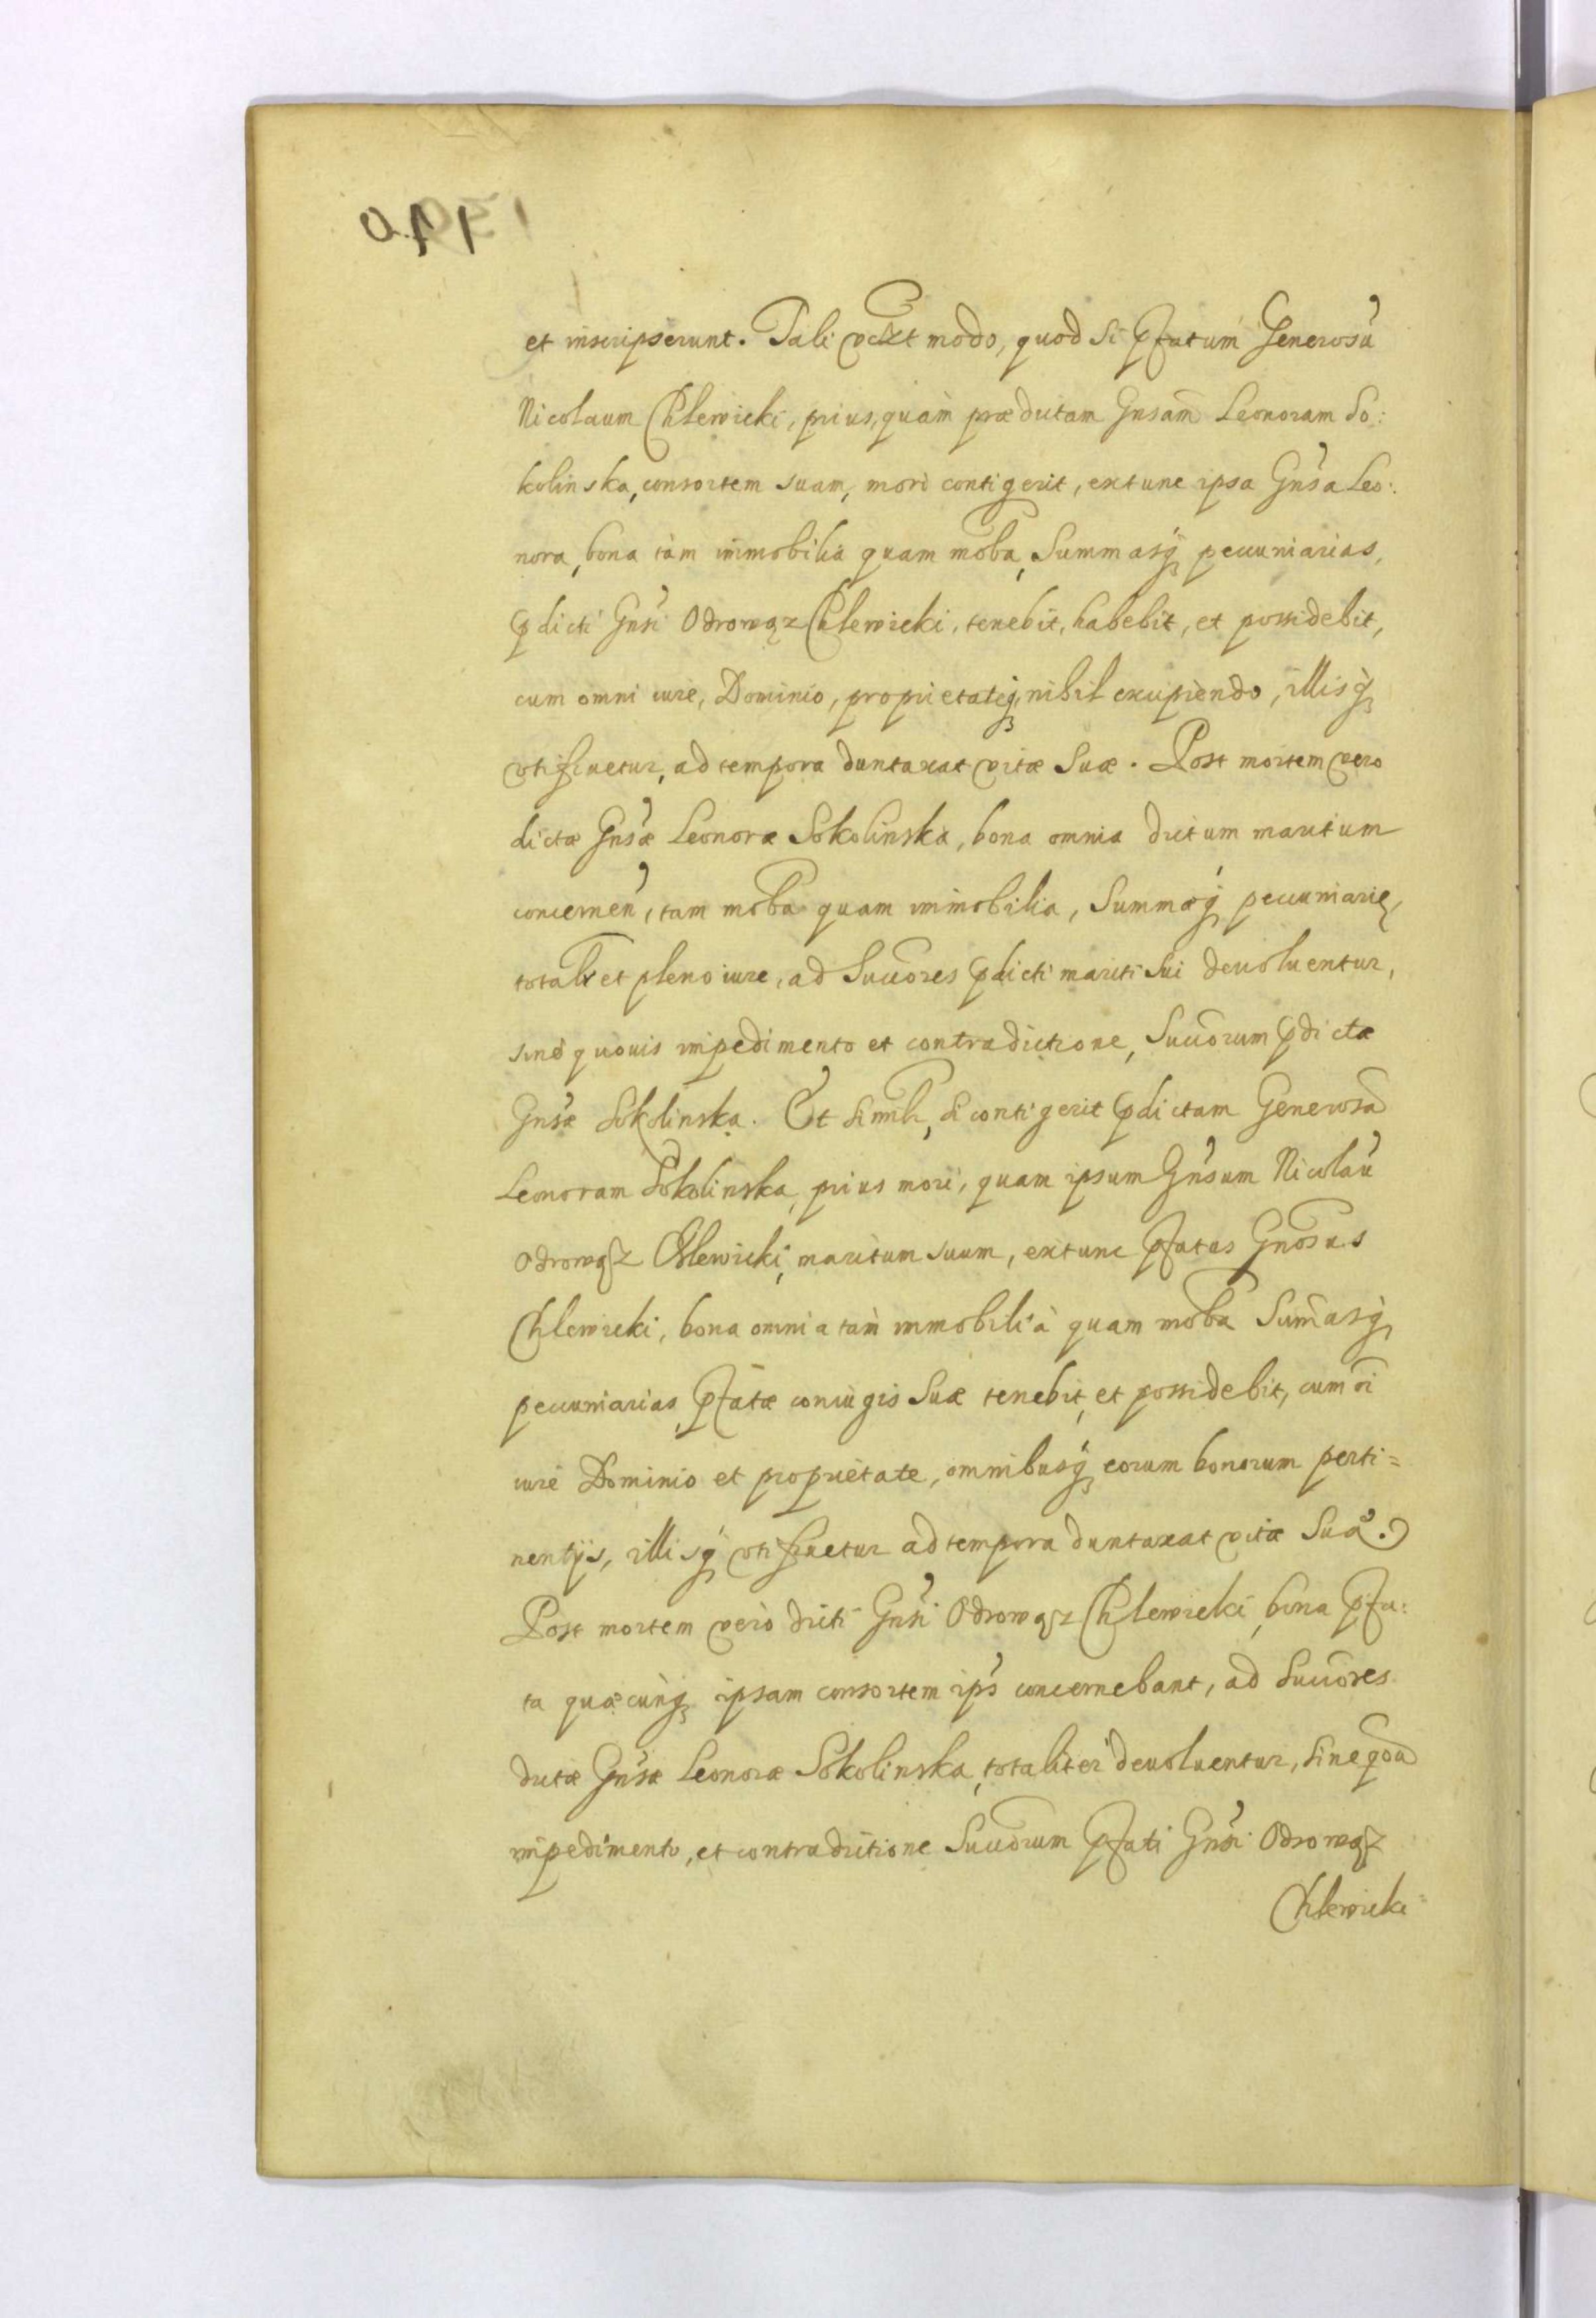 et inscripserunt. Tali vclzt modo, quod si Pfatum Generosū
Nicolaum Chlewicki, prius, quàm prædictam Gnsam̃ Leonoram So:
kolinska, consortem suam, mori contigerit, extunc ipsa Gnsa Leo:
nora, bona tàm immobilia quam moba, Summasq; pecuniarias,
pdicti Gnsi Odrowąz Chlewicki, tenebit, habebit, et possidebit,
cum omni iure, Dominio, proprietateq; nihil excipiendo, illisq;
vtifruetur, ad tempora duntaxat vitæ Suæ. Post mortem vero
dictæ Gnsæ Leonoræ Sokolinska, bona omnia dictum maritum
concernen̄, tam moba quam immobilia, Summæq; pecuniarię,
totalr et pleno iure, ad Succores pdicti mariti Sui deuoluentur,
sine quouis impedimento et contradictione, Succorum pdictæ
Gnsæ Sokolinska. Et simlr, si contigerit pdictam Generosā
Leonoram Sokolinska, prius mori, quam ipsum Gnsum Nicolaū
Odrowąz Chlewicki, maritum suum, extunc Pfatus Gnosus
Chlewicki, bona omnia tam̀ immobilià quam moba Sum̃asq;
pecuniarias, Pfatæ coniugis Suæ tenebit, et possidebit, cum oi
iure Dominio et proprietate, omnibusq; eorum bonorum perti=
nentijs, illisq; vtifruetur ad tempora duntaxat vitæ Suæ.
Post mortem verò dicti Gnsi Odrowąz Chlewicki, bona Pfa:
ta quæcunq; ipsam consortem ips concernebant, ad Succores
dictæ Gnsæ Leonoræ Sokolinska, totaliter deuoluentur, sine qoū
impedimento, et contradictione Succorum Pfati Gnsi Odrowąz
Chlewicki